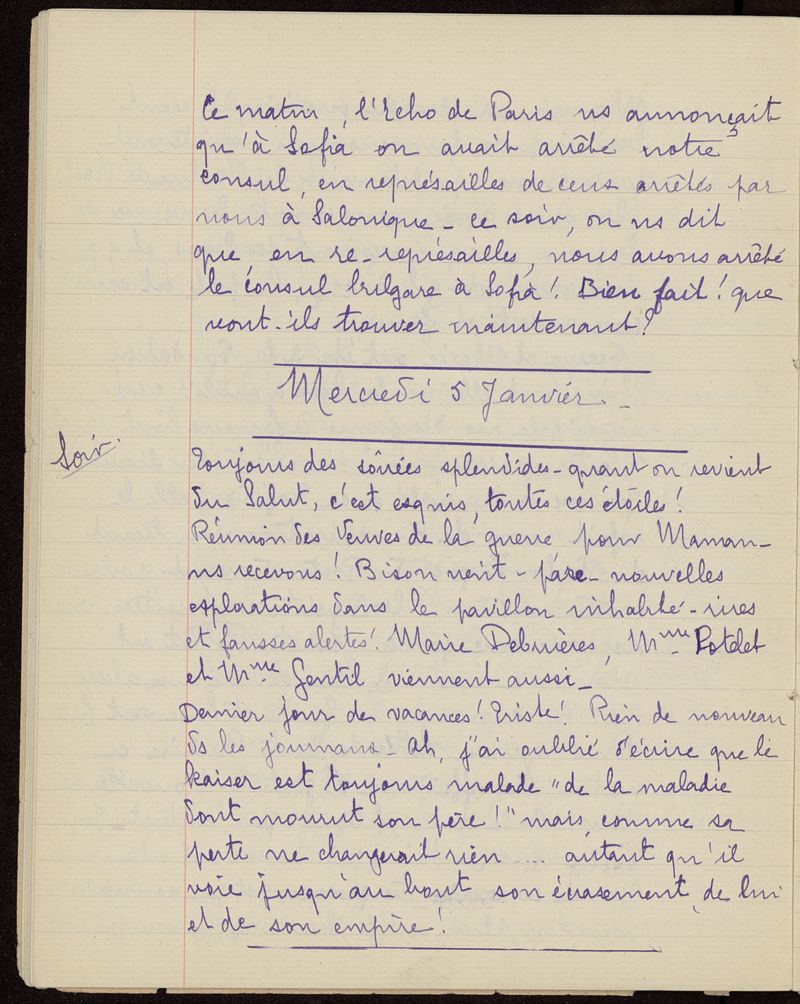 Ce matin, l'Echo de Paris ns annonçait
qu'à Sofia on avait arrêté notre
consul, en représailles de ceux arrêtés par
nous à Salonique - ce soir, on ns dit
que en re-représailles, nous avons arrêté
le consul bulgare à Sofia! Bien fait! que
vont-ils trouver maintenant?
Mercredi 5 Janvier -
Soir.
Toujours des soirées splendides - quant on revient
du Salut, c'est exquis, toutes ces étoiles!
Réunion des Veuves de la guerre pour Maman -
ns recevons! Bison vient - nouvelles
explorations dans le pavillon inhabité - rires
et fausses alertes! Marie Debrières, Mme Potelet
et Mme Gentil viennent aussi -
Dernier jour de vacances! Triste! Rien de nouveau
ds les journaux - Ah, j'ai oublié d'écrire que le
kaiser est toujours malade "de la maladie
dont mourut son père!" mais, comme sa
perte ne changerait rien .... autant qu'il
voie jusqu'au bout son écrasement, de lui
et de son empire!